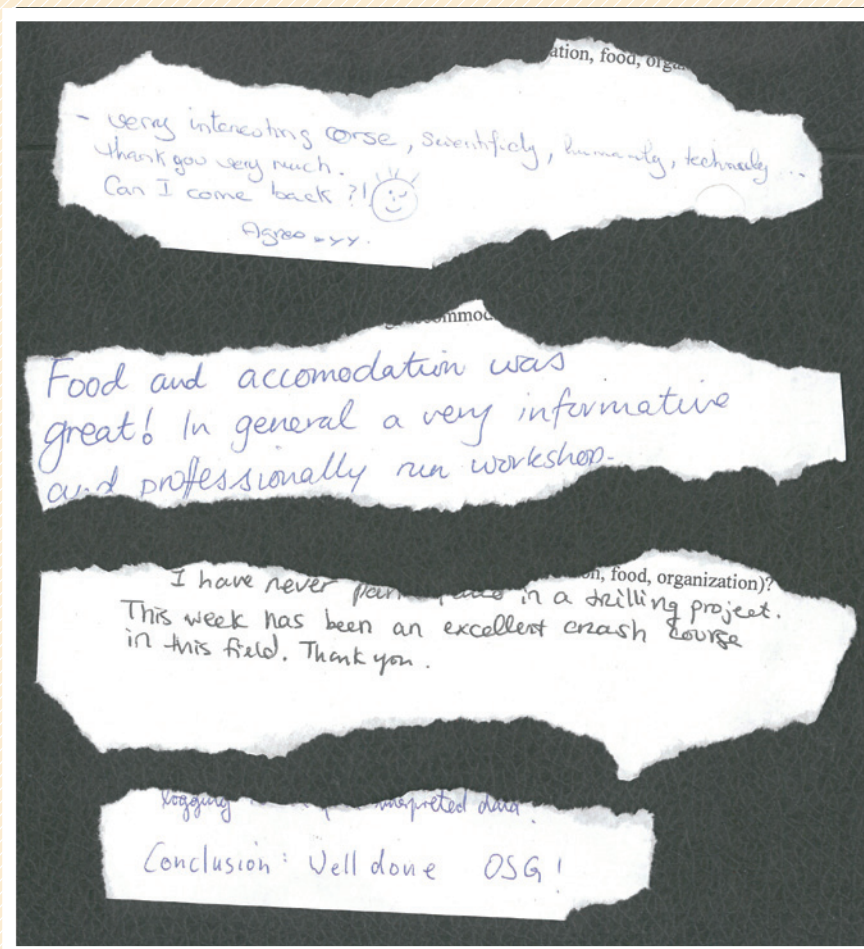 ation, food, orga
- verry interesting corse, scientificly, humanly, technicaly ...
thank you very much.
Can I come back ?!
Agree
ommod
Food and accomodation was
great! In general a very informative
and professionally run workshop.
n, food, organization)?
I have never in a drilling project.
This week has been an excellent crash course
in this field. Thank you.
logging interpreted data.
Conclusion: Well done OSG!